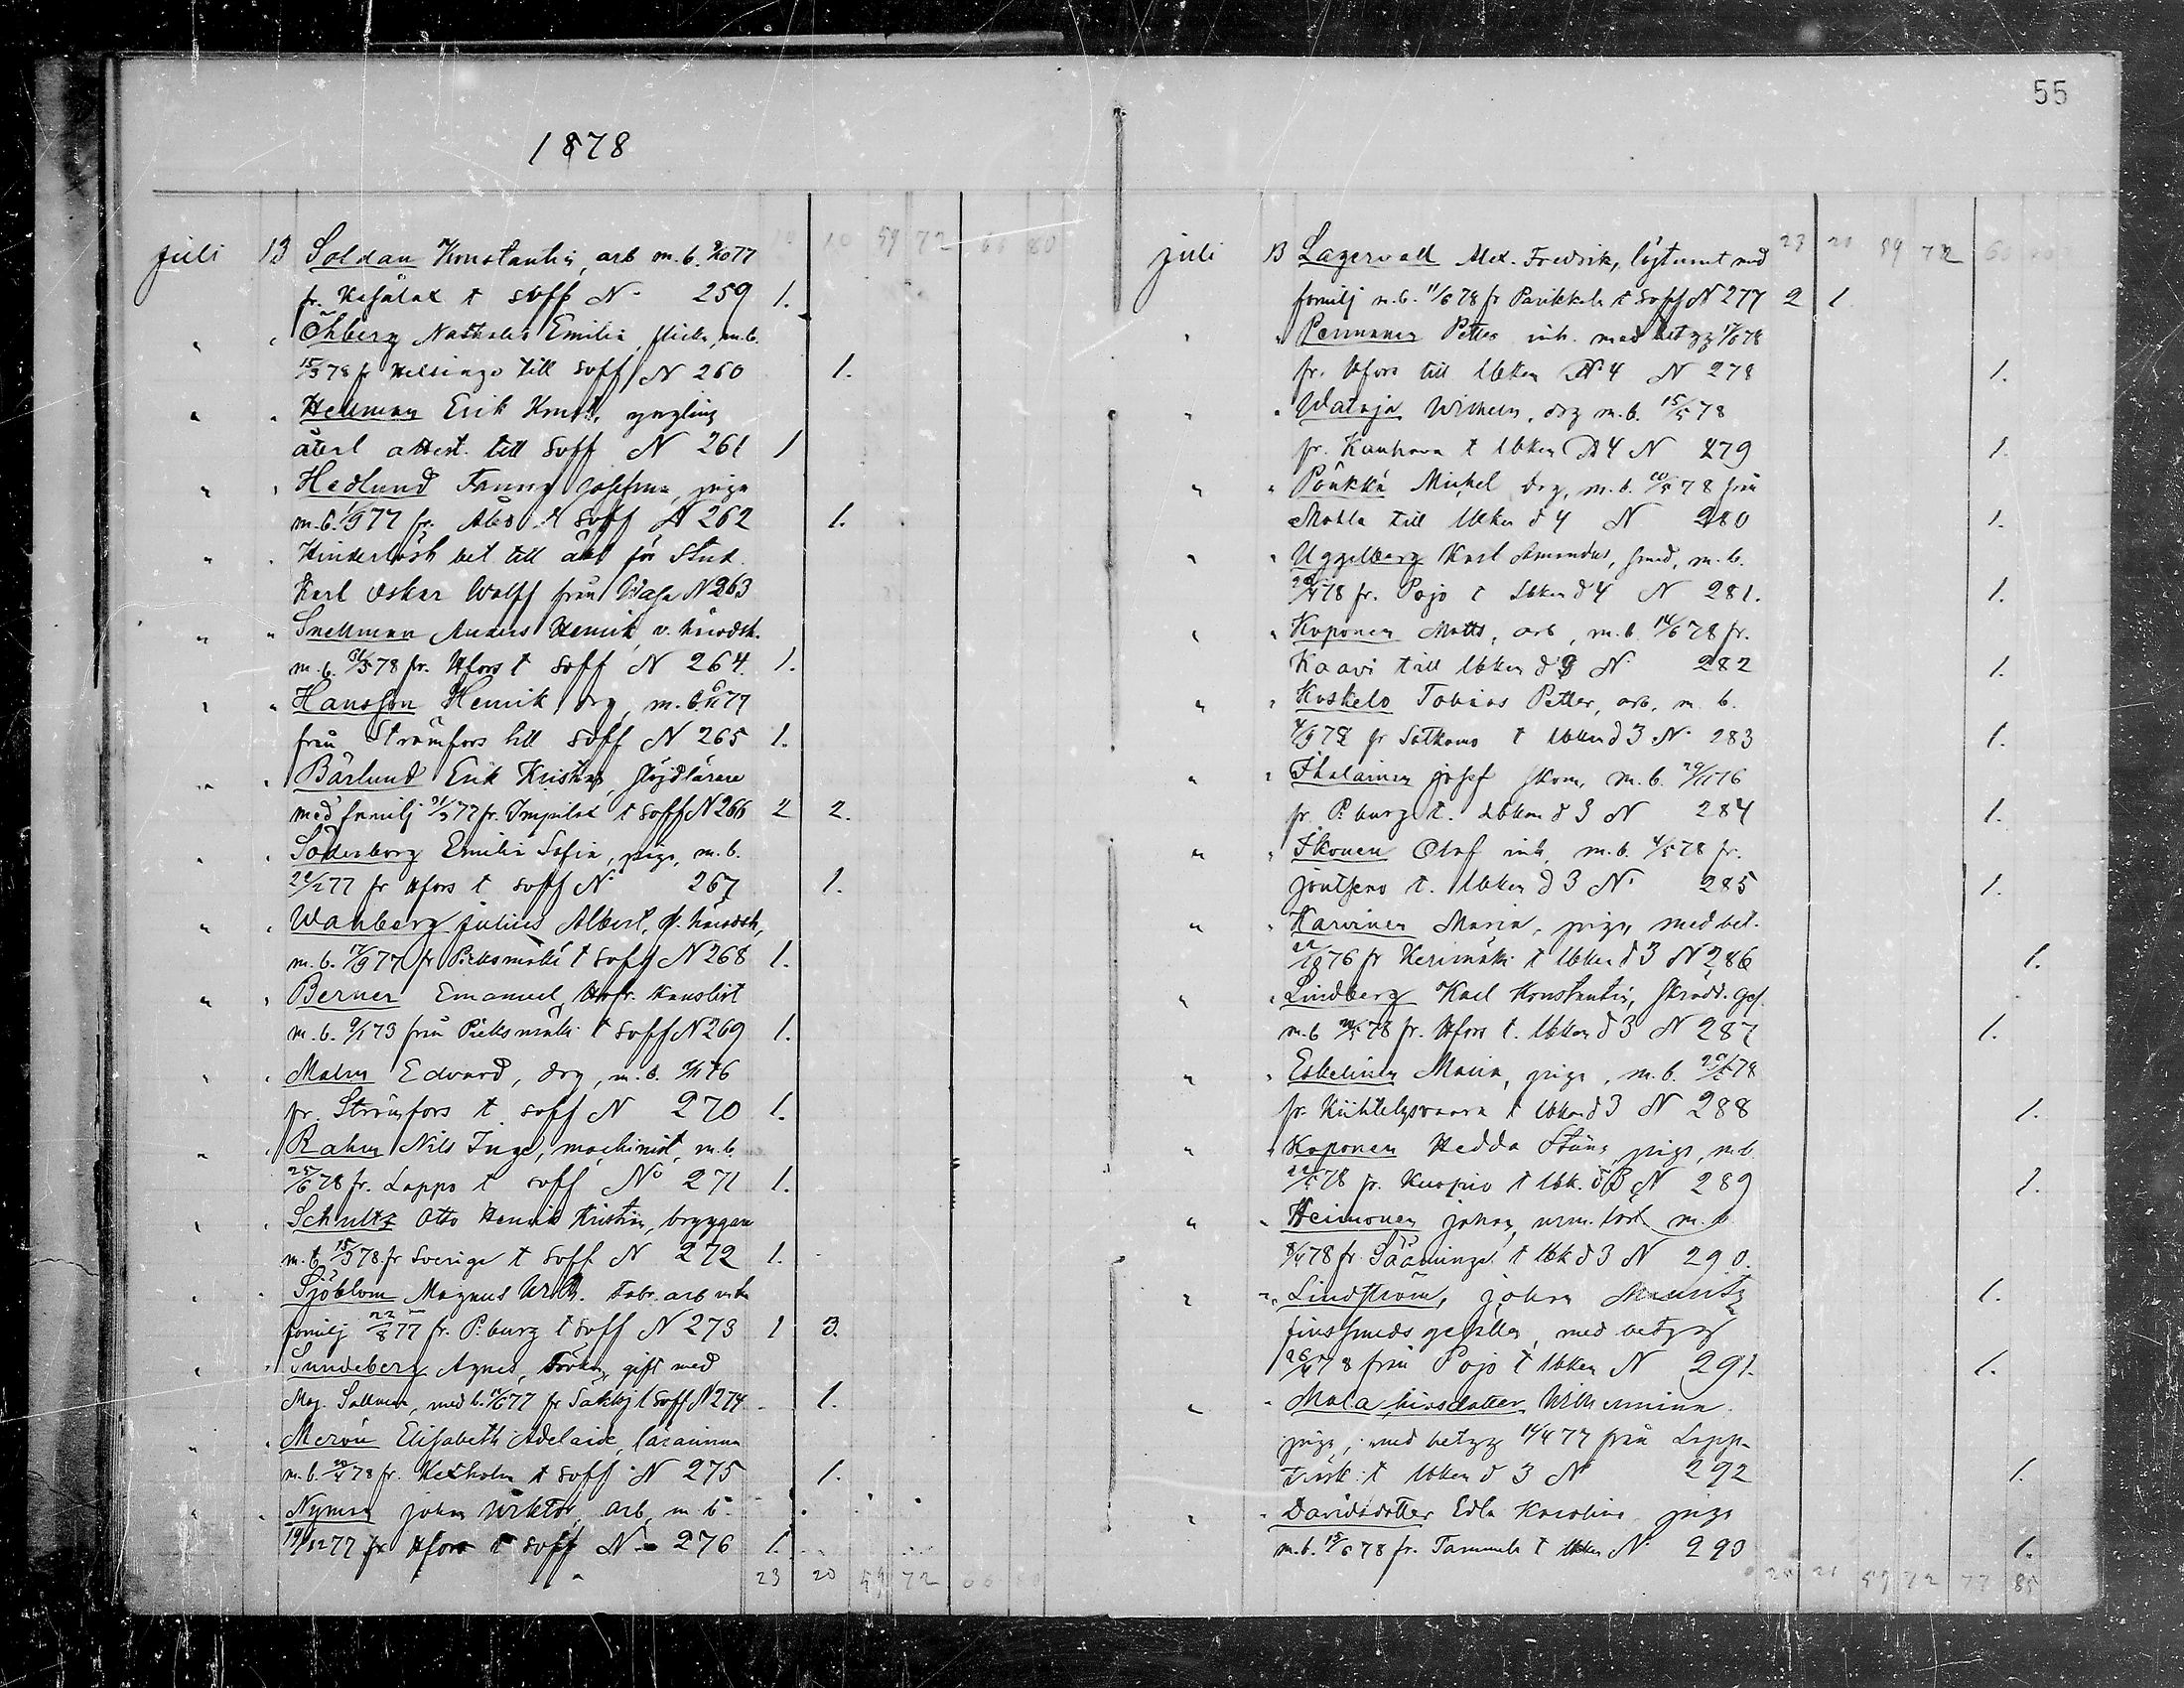 55
1878
10 10 59 72 66 80
Juli 13 Soldan Konstantin, arb m. b. 9/10 77
fr. Kesälax t soff N. 259 1.
" " Öhberg Nathalia Emilia, flicka, m. b.
15/3 78 fr Helsinge till soff N 260 1.
" " Hellman Erik Knut, yngling
återl attest. till soff N 261 1
" " Hedlund Fanny Josefina, piga
m. b. 1/9 77 fr. Åbo t soff N 262 1.
" " Hinderlösh bet till äkt för Stud.
Karl Oskar Wolff från Wasa N 263
" " Snellman Anders Henrik, v. häradsh.
m. b. 31/5 78 fr. Hfors t soff N 264. 1.
" " Hansson Henrik drg, m. b. 6/11 77
från Strömfors till soff N 265 1.
" " Bärlund Erik Kristian, slöjdlärare
med familj 31/3 77 fr. Impilax t soff N 266 2 2.
" " Söderborg Emilia Sofia, piga, m. b.
22/2 77 fr Hfors t soff N 267 1.
" " Wahberg Julius Albert, v. häradsh,
m. b. 17/9 77 fr Pieksmäki t soff N 268 1.
" " Berner Emanuel, Hofr. Kanslist
m. b. 9/1 73 från Pieksmäki t soff N 269 1.
" " Malm Edvard, drg, m. b. 76
fr. Strömfors t soff N 270 1.
" " Rahm Nils Inge, machinist, m. b.
25/6 78 fr. Lappo t soff No 271 1.
" " Schultz Otto Henrik Kristian, bryggare
m. b. 15/3 78 fr Sverige t soff N 272 1.
" " Sjöblom Magnus Wilh. Fabr. arb
familj 22/8 77 fr. P:burg t soff N 273 1 3.
" " Sundeberg Agnes, Fröken, gift med
Mag. Sallmen, med b. 77 fr Sakkj t soff N 274 1.
" " Elisabeth Adelaide, lärarinna
m. b. 78 fr. Kexholm t soff N 275 1.
" " Nyman Johan Wiktor, arb, m. b.
19/12 77 fr Hfors t soff N 276 1.
23 20 59 72 66 80
23 20 59 72 60 80
Juli 13 Lagervall Alex. Fredrik, löjtnant med
familj m. b. 11/6 78 fr Parikkala t soff N 277 2 1
" " Pennanen Petter inh. med betyg 17/6 78
fr. Hfors till lbken N 4 N 278 1.
" " Wataja Wilhelm, drg m. b. 15/5 78
fr. Kauhava t lbken d 4 N 279 1.
" " Pönkkä Mickel drg, m. b. 20/5 78 från
Mohla till lbken d 4 N 280 1.
" " Uggelberg Karl Amandus, smed, m. b.
4 78 fr. Pojo t lbken d 4 N 281. 1.
" " Koponen Matts, arb, m. b. 14/6 78 fr.
Kaavi till lbken d 9 N 282 1.
" " Koskelo Tobias Petter, arb. m. b.
4/9 72 fr Sotkamo t lbken d 3 N 283 1.
" " Ihalainen Josef skom, m. b. 29/11 76
fr. P:burg t. lbken d 3 N 284 1.
" " Ikonen Olof inh, m. b. 4/5 78 fr.
Joutseno t. lbken d 3 N 285 1.
" " Karvinen Maria, piga, med bet.
76 fr Kerimäki t lbken d 3 N 286 1.
" " Lindberg Karl Konstantin, skrädd. Ges.
m. b. 78 fr. Hfors t. lbken d 3 N 287 1.
" " Eskelinen Maria, piga, m. b. 78
fr Kiihtelysvaara t lbken d 3 N 288 1.
" " Koponen Hedda Stina piga, m. b.
22/5 78 fr. Kuopio t lbk. d 3 N 289 1.
" " Heimonen Johan, m. b.
8/4 78 fr. Sääminge t lbk d 3 N 290.
" " Lindström, Johan Mauritz 1.
finsmeds gesällen, med betyg
26/4 78 från Pojo t lbken N 291. 1.
" " Malachiasdotter Wilhelmina
piga, med betyg 14/4 77 från Lapp-
träsk t lbken d 3 N 292 1.
" " Davidsdotter Edla Karolina piga
m. b. 15/6 78 fr. Tammela t lbken N 293 1.
25 21 59 72 77 85